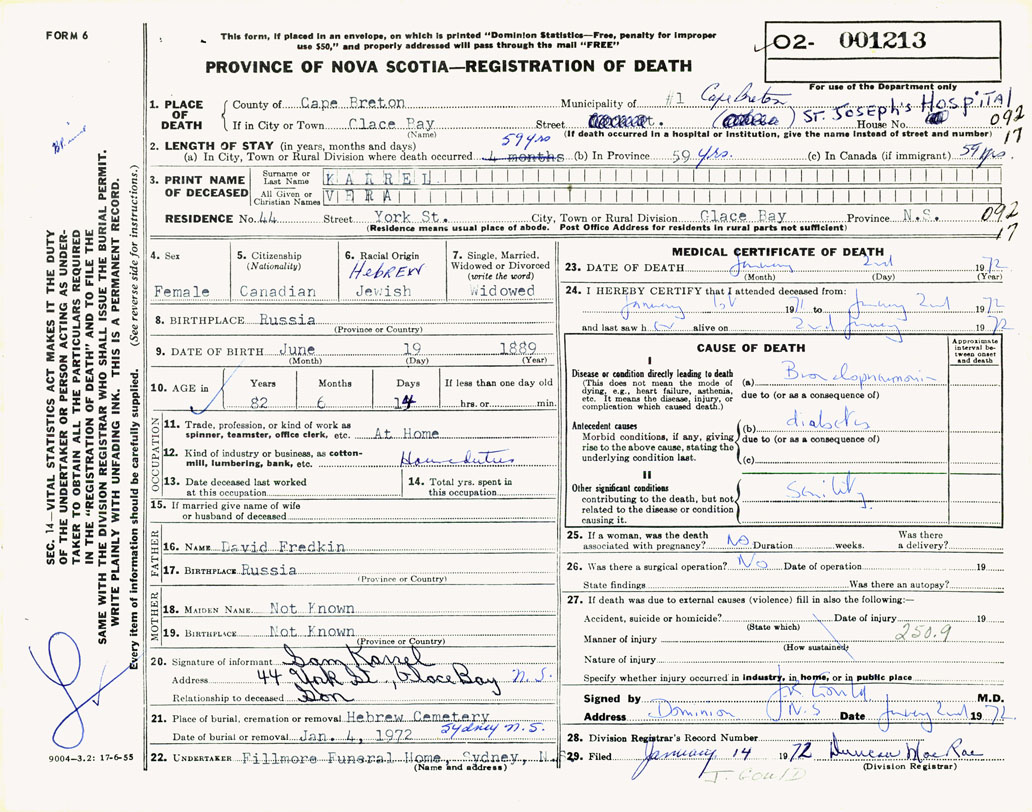 FORM 6
This form, if placed in an envelope, on which is printed "Dominion Statistics—Free, penalty for improper
use $50," and properly addressed will pass through the mail "FREE"
PROVINCE OF NOVA SCOTIA—REGISTRATION OF DEATH
02- 001213
For use of the Department only
1. PLACE OF DEATH
County of Cape Breton Municipality of #1 Cape Breton
If in City or Town Glace Bay Street ST. JOSEPH'S HOSPITAL House No. 092
(Name) (If death occurred in a hospital or institution, give the name instead of street and number) 17
2. LENGTH OF STAY (in years, months and days) 59 yrs
(a) In City, Town or Rural Division where death occurred 4 months (b) In Province 59 yrs. (c) In Canada (if immigrant) 59 yrs.
3. PRINT NAME OF DECEASED
Surname or Last Name KARREL
All Given or Christian Names VERA
RESIDENCE No. 44 Street York St. City, Town or Rural Division Glace Bay Province N.S. 092
(Residence means usual place of abode. Post Office Address for residents in rural parts not sufficient) 17
4. Sex
Female
5. Citizenship
(Nationality)
Canadian
6. Racial Origin
HEBREW
Jewish
7. Single, Married, Widowed or Divorced
(write the word)
Widowed
8. BIRTHPLACE Russia
(Province or Country)
9. DATE OF BIRTH June 19 1889
(Month) (Day) (Year)
10. AGE in
Years Months Days If less than one day old
82 6 14 hrs. or min.
OCCUPATION
11. Trade, profession, or kind of work as
spinner, teamster, office clerk, etc. At Home
12. Kind of industry or business, as cotton-
mill, lumbering, bank, etc. Housduties
13. Date deceased last worked
at this occupation
14. Total yrs. spent in
this occupation
15. If married give name of wife
or husband of deceased
FATHER
16. NAME David Fredkin
17. BIRTHPLACE Russia
(Province or Country)
MOTHER
18. MAIDEN NAME Not Known
19. BIRTHPLACE Not Known
(Province or Country)
20. Signature of informant Sam Karrel
Address 44 York St., Glace Bay N.S.
Relationship to deceased Son
21. Place of burial, cremation or removal Hebrew Cemetery
Sydney N.S.
Date of burial or removal Jan. 4, 1972
22. UNDERTAKER Fillmore Funeral Home, Sydney, N.S.
(Name and address)
MEDICAL CERTIFICATE OF DEATH
23. DATE OF DEATH January 2nd 1972
(Month) (Day) (Year)
24. I HEREBY CERTIFY that I attended deceased from:
January 1st 1971 to January 2nd 1972
and last saw her alive on 2nd January 1972
CAUSE OF DEATH
Approximate interval between onset and death
I
Disease or condition directly leading to death
(This does not mean the mode of
dying, e.g., heart failure, asthenia,
etc. It means the disease, injury, or
complication which caused death.)
(a) Bronchopneumonia
due to (or as a consequence of)
Antecedent causes
Morbid conditions, if any, giving
rise to the above cause, stating the
underlying condition last.
(b) diabetes
due to (or as a consequence of)
(c)
II
Other significant conditions
contributing to the death, but not
related to the disease or condition
causing it.
Senility
25. If a woman, was the death
associated with pregnancy? No Duration weeks. Was there
a delivery?
26. Was there a surgical operation? No Date of operation 19
State findings Was there an autopsy?
27. If death was due to external causes (violence) fill in also the following:—
Accident, suicide or homicide? Date of injury 19
(State which)
Manner of injury 250.9
(How sustained)
Nature of injury
Specify whether injury occurred in industry, in home, or in public place
Signed by JR Gould M.D.
Address Dominion N.S Date January 2nd 1972
28. Division Registrar's Record Number
29. Filed January 14 1972 Duncan MacRae
(Division Registrar)
J. GOULD
SEC. 14—VITAL STATISTICS ACT MAKES IT THE DUTY
OF THE UNDERTAKER OR PERSON ACTING AS UNDER-
TAKER TO OBTAIN ALL THE PARTICULARS REQUIRED
IN THE "REGISTRATION OF DEATH" AND TO FILE THE
SAME WITH THE DIVISION REGISTRAR WHO SHALL ISSUE THE BURIAL PERMIT.
WRITE PLAINLY WITH UNFADING INK. THIS IS A PERMANENT RECORD.
Every item of information should be carefully supplied. (See reverse side for instructions.)
9004—3.2: 17-6-55